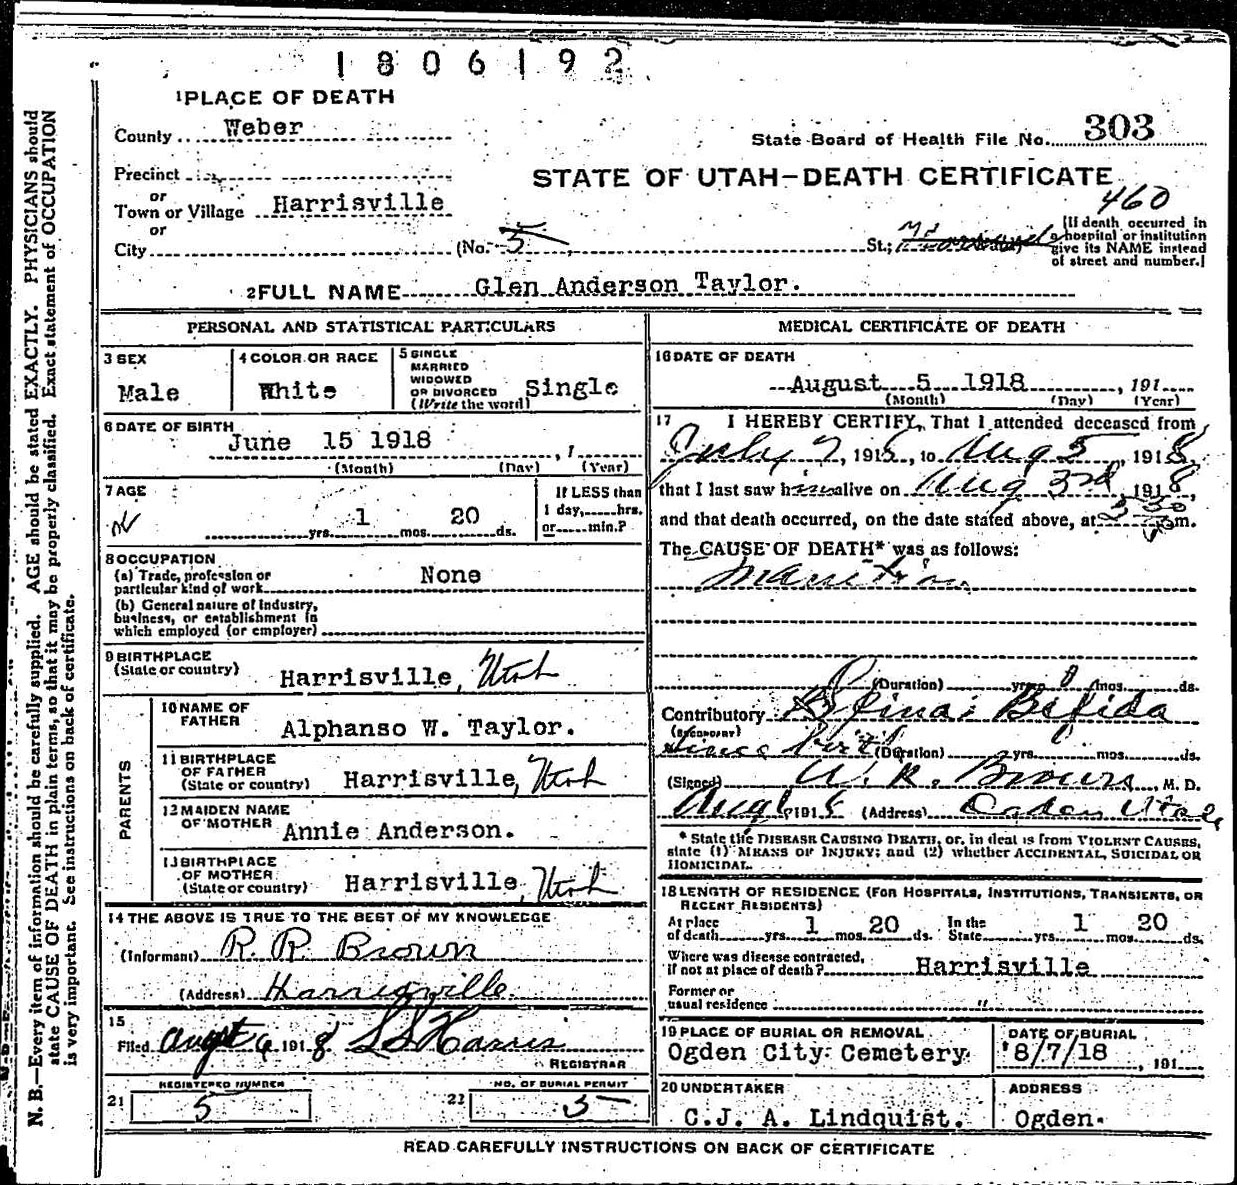 1806192
1 PLACE OF DEATH
County Weber
State Board of Health File No. 303
Precinct
STATE OF UTAH—DEATH CERTIFICATE
or
Town or Village Harrisville
460
or
City (No. 5 St.;
[If death occurred in
a hospital or institution
give its NAME instead
of street and number.]
2 FULL NAME Glen Anderson Taylor.
PERSONAL AND STATISTICAL PARTICULARS
3 SEX
Male
4 COLOR OR RACE
White
5 SINGLE
MARRIED
WIDOWED
OR DIVORCED Single
(Write the word)
6 DATE OF BIRTH
June 15 1918 , 1
(Month) (Day) (Year)
7 AGE
yrs. 1 mos. 20 ds.
If LESS than
1 day,.....hrs.
or.....min.?
8 OCCUPATION
(a) Trade, profession or
particular kind of work None
(b) General nature of Industry,
business, or establishment in
which employed (or employer)
9 BIRTHPLACE
(State or country) Harrisville, Utah
PARENTS
10 NAME OF
FATHER Alphanso W. Taylor.
11 BIRTHPLACE
OF FATHER
(State or country) Harrisville, Utah
12 MAIDEN NAME
OF MOTHER Annie Anderson.
13 BIRTHPLACE
OF MOTHER
(State or country) Harrisville, Utah
14 THE ABOVE IS TRUE TO THE BEST OF MY KNOWLEDGE
(Informant) R. R. Brown
(Address) Harrisville
15
Filed August 6 1918 L S Harris
REGISTRAR
REGISTERED NUMBER
21 5
NO. OF BURIAL PERMIT
22 5
MEDICAL CERTIFICATE OF DEATH
16 DATE OF DEATH
August 5 1918 , 191
(Month) (Day) (Year)
17 I HEREBY CERTIFY, That I attended deceased from
July 7, 1918, to Aug 5, 1918,
that I last saw him alive on Aug 3rd, 1918,
and that death occurred, on the date stated above, at m.
The CAUSE OF DEATH* was as follows:
(Duration) yrs. mos. ds.
Contributory Spina Bifida
(SECONDARY)
since birth (Duration) yrs. mos. ds.
(Signed) W. R. , M. D.
Aug 1918 (Address) Ogden Utah
* State the DISEASE CAUSING DEATH, or, in deat is from VIOLENT CAUSES,
state (1) MEANS OF INJURY; and (2) whether ACCIDENTAL, SUICIDAL OR
HOMICIDAL.
18 LENGTH OF RESIDENCE (FOR HOSPITALS, INSTITUTIONS, TRANSIENTS, OR
RECENT RESIDENTS)
At place
of death yrs. 1 mos. 20 ds.
In the
State yrs. 1 mos. 20 ds.
Where was disease contracted,
if not at place of death? Harrisville
Former or
usual residence "
19 PLACE OF BURIAL OR REMOVAL
Ogden City Cemetery
DATE OF BURIAL
8/7/18 , 191
20 UNDERTAKER
C.J. A. Lindquist.
ADDRESS
Ogden.
READ CAREFULLY INSTRUCTIONS ON BACK OF CERTIFICATE
N. B.—Every item of information should be carefully supplied. AGE should be stated EXACTLY. PHYSICIANS should
state CAUSE OF DEATH in plain terms, so that it may be properly classified. Exact statement of OCCUPATION
is very important. See instructions on back of certificate.